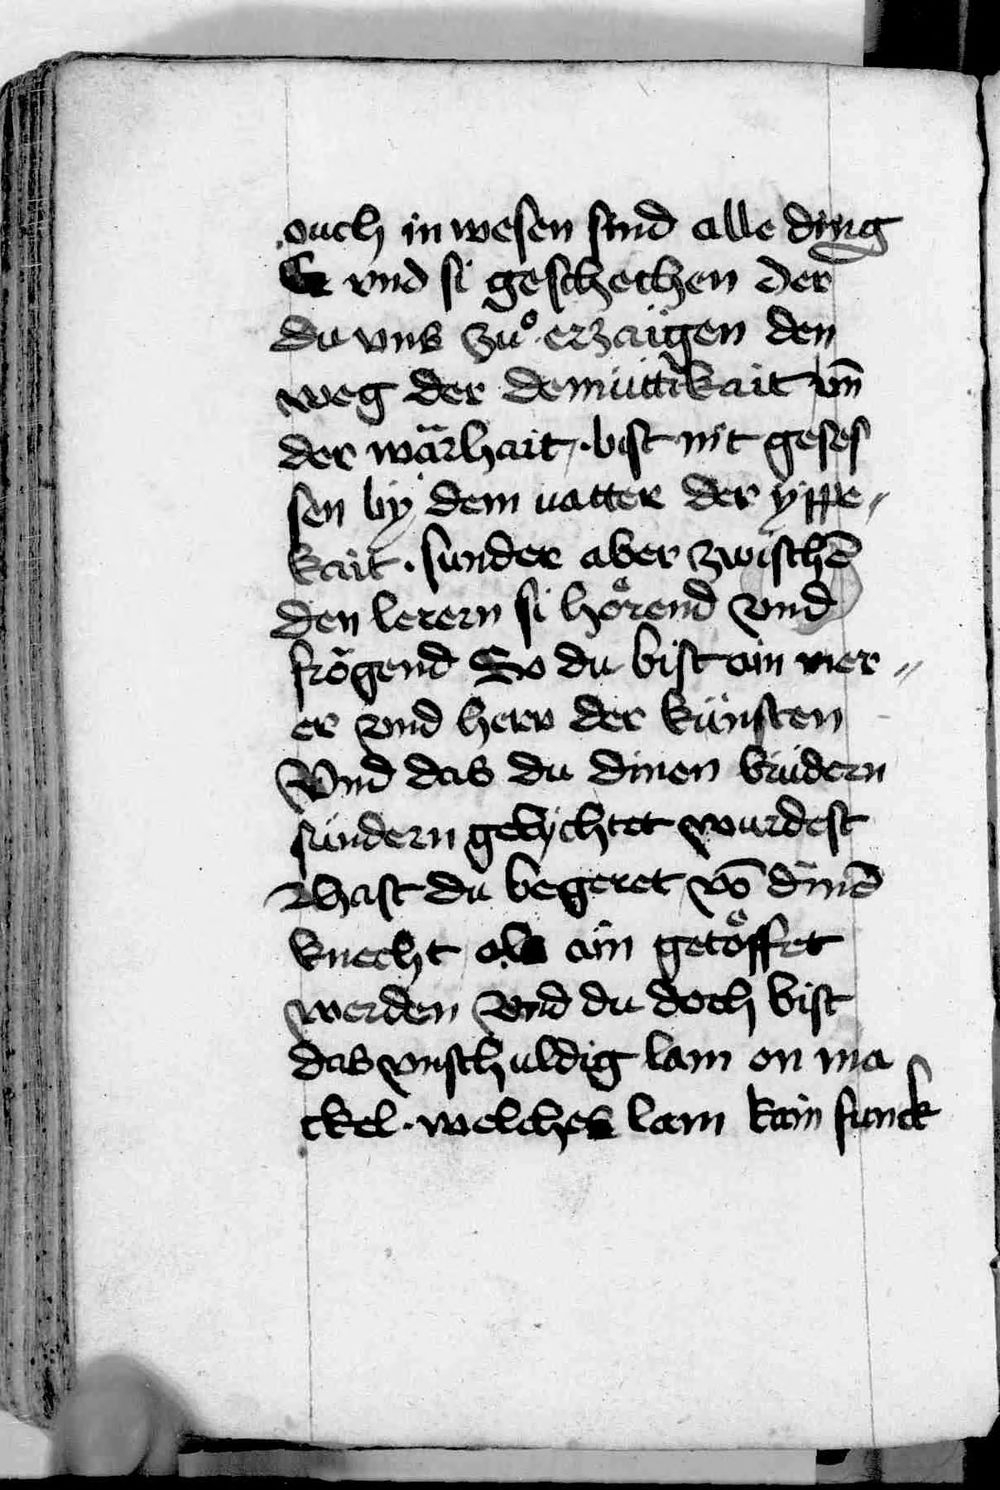 ouch in wesen sind alle ding
E vnd si geschechen Der
du vns zuͦ erzaigen den
weg der demüttikait vn̄
der wärhait · bist nit geses
sen by dem uatter der yppe〃
kait · sunder aber zwischē
den lerern si hoͤrend vnd
frögend So du bist ain mer〃
er vnd herr der künsten
Vnd das du dinen brüdern
sündern gelychtet wurdest
Hast du begeret vō dinē
knecht als ain getoͤffet
werden Vnd du doch bist
das vnschuldig lam on ma
ckel · welches lam kain funck